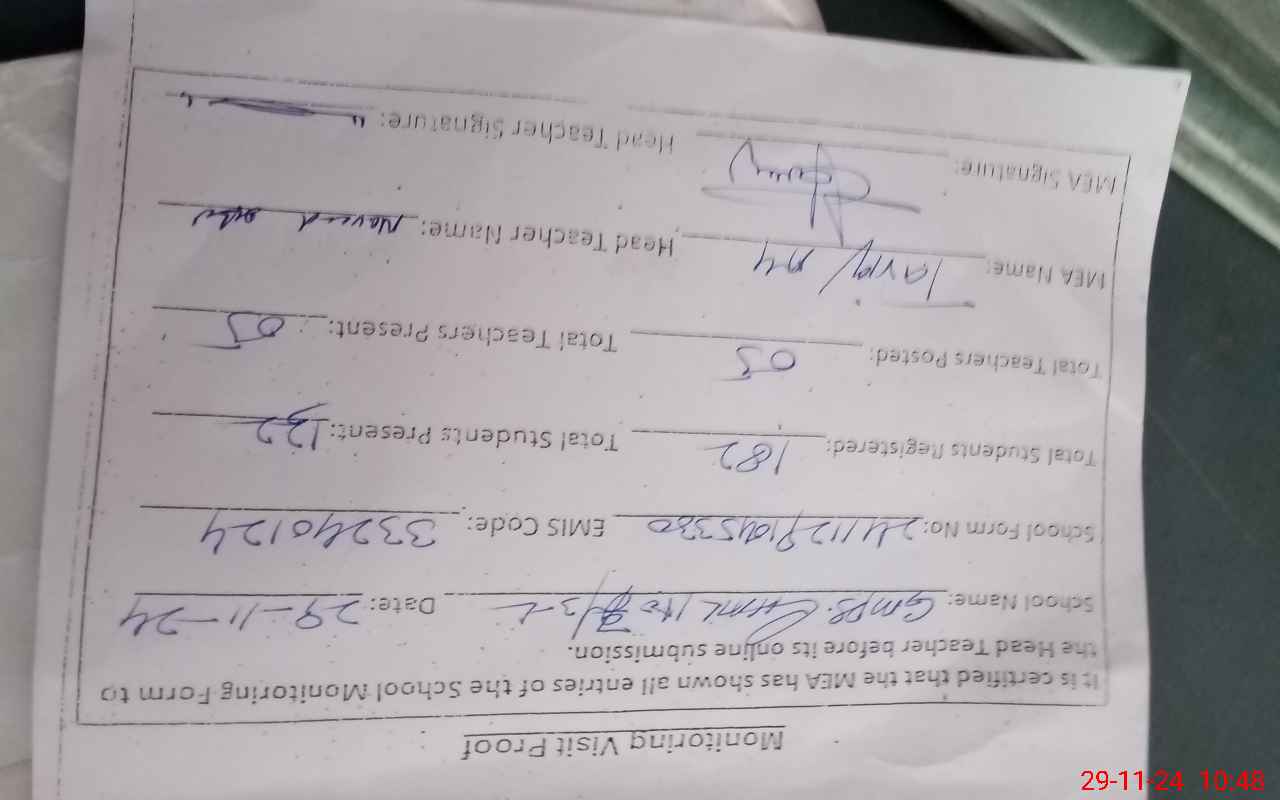 Monitoring Visit Proof
It is certified that the MEA has shown all entries of the School Monitoring Form to
the Head Teacher before its online submission.
School Name: GMPS Date: 29-11-24
School Form No: EMIS Code: 33240124
Total Students Registered: 182 Total Students Present: 132
Total Teachers Posted: 05 Total Teachers Present: 05
MEA Name: Head Teacher Name: Naveed
MEA Signature: Head Teacher Signature:
29-11-24 10:48